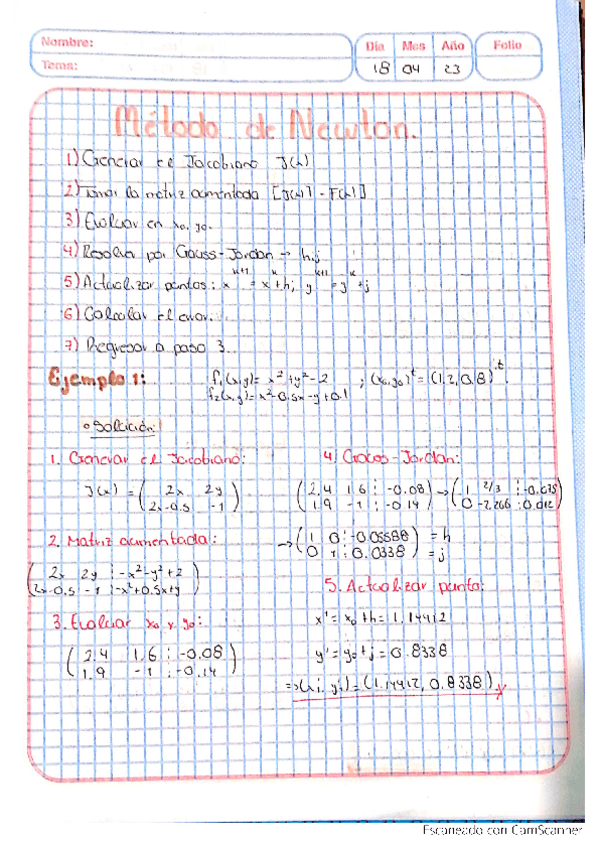 Nombre:
Tema:
Día Mes Año Folio
18 04 23
Método de Newton.
1) Generar el Jacobiano J(x)
2) Tomar la matriz aumentada [J(x) - F(x)]
3) Evaluar en x0, y0.
4) Resolver por Gauss-Jordan → h,j
5) Actualizar puntos: x^k+1 = x^k + h; y^k+1 = y^k + j
6) Calcular el error.
7) Regresar a paso 3.
Ejemplo 1:
f1(x,y)= x²+y²-2 ; (x0,y0)^t = (1.2, 0.8)^t
f2(x,y)= x²-0.5x-y+0.1
• Solución:
1. Generar el Jacobiano:
J(x) = ( 2x 2y
2x-0.5 -1 )
2. Matriz aumentada:
( 2x 2y ¦ -x²-y²+2
2x-0.5 -1 ¦ -x²+0.5x+y )
3. Evaluar x0 y y0:
( 2.4 1.6 ¦ -0.08
1.9 -1 ¦ -0.14 )
4. Gauss-Jordan:
( 2.4 1.6 ¦ -0.08 ) → ( 1 2/3 ¦
1.9 -1 ¦ -0.14 0 -2.266 ¦ 0.012 )
→ ( 1 0 ¦ -0.05588 ) = h
0 1 ¦ 0.0338 = j
5. Actualizar punto:
x' = x0 + h = 1.14412
y' = y0 + j = 0.8338
=> (x1, y1) = (1.14412, 0.8338)
Escaneado con CamScanner